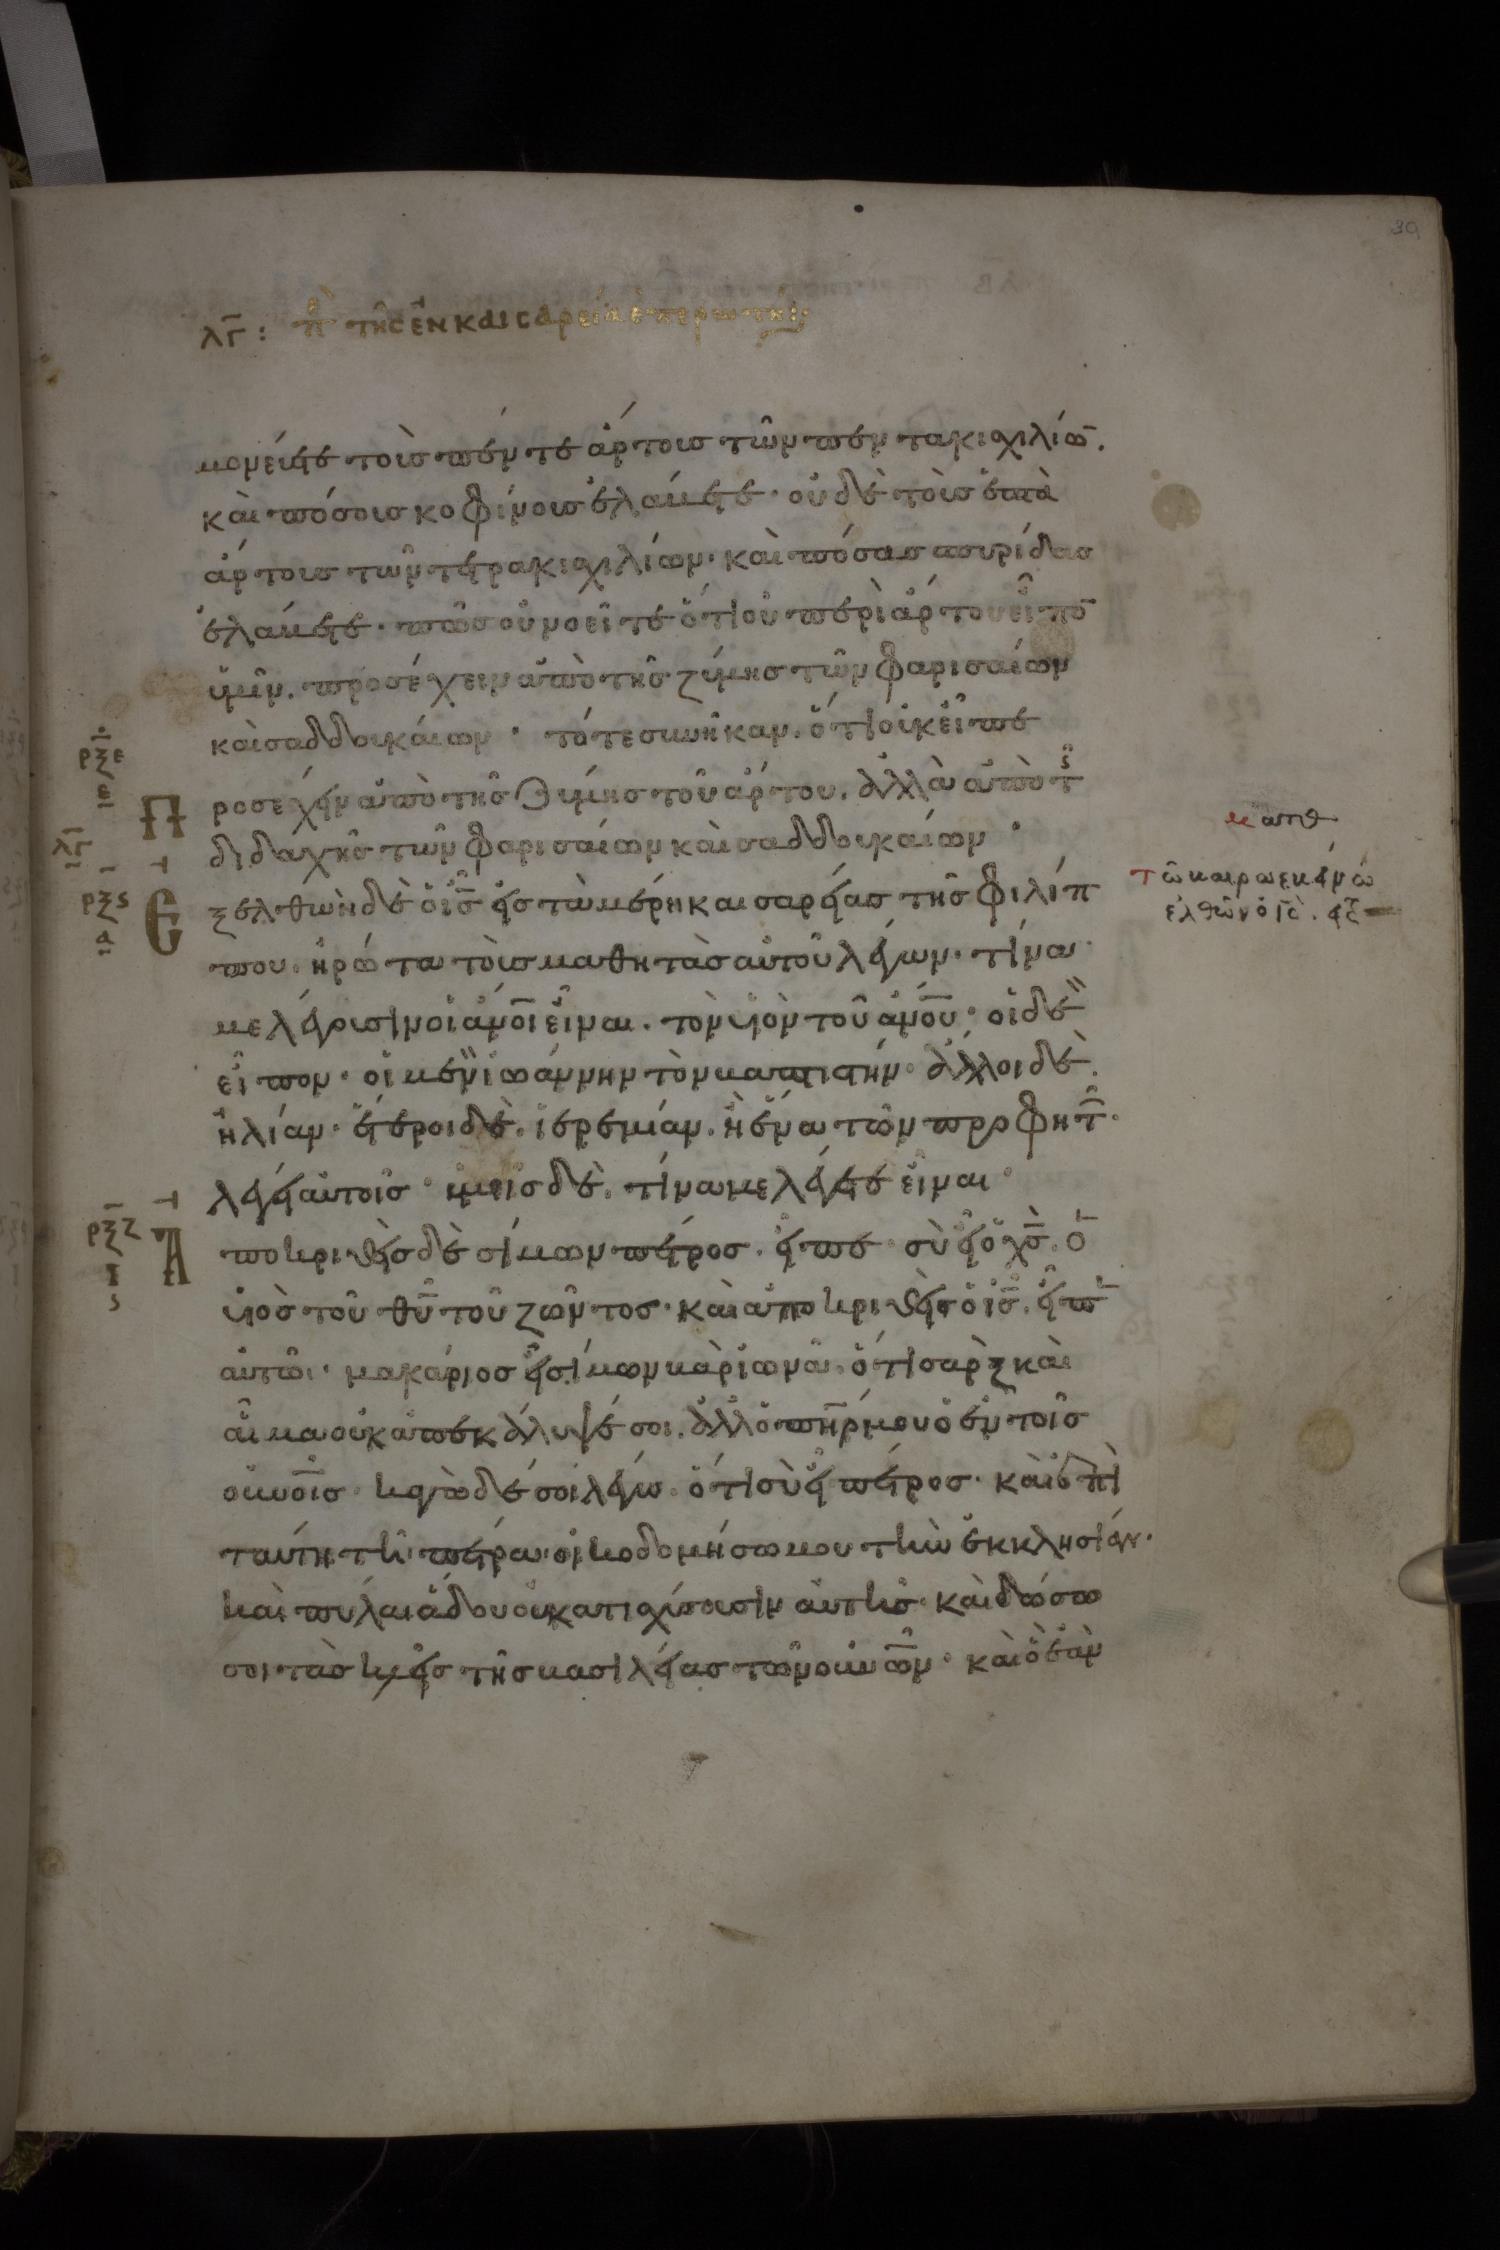 39
λγ: πρ τῆς ἐν καισαρεία ἐπερωτή
μονεύετε τοὺς πέντε ἄρτους τῶν πεντακισχιλίων.
καὶ πόσους κοφίνους ἐλάβετε· οὐδὲ τοὺς ἑπτὰ
ἄρτους τῶν τετρακισχιλίων· καὶ πόσας σπυρίδας
ἐλάβετε· πῶς οὐ νοεῖτε ὅτι οὐ περὶ ἄρτου εἶπον
ὑμῖν. προσέχειν ἀπὸ τῆς ζύμης τῶν φαρισαίων
καὶ σαδδουκαίων· τότε συνῆκαν. ὅτι οὐκ εἶπε
ρξε
ε
Π
ροσέχειν ἀπὸ τῆς ζύμης τοῦ ἄρτου. ἀλλὰ ἀπὸ τῆς
λγ
διδαχῆς τῶν φαρισαίων καὶ σαδδουκαίων·
ματθ
ρξς
α
Ε
ξελθὼν δὲ ὁ ις εἰς τὰ μέρη καισαρείας τῆς φιλίπ
τῶ καιρω εκείνω
ἐλθὼν ὁ ις. εἰς
που. ἠρώτα τοὺς μαθητὰς αὐτοῦ λέγων· τίνα
με λέγουσιν οἱ ἀνοι εἶναι. τὸν υἱὸν τοῦ ἀνου· οἱ δὲ
εἶπον· οἱ μὲν ἰωάννην τὸν βαπτιστήν· ἄλλοι δὲ.
ἠλίαν· ἕτεροι δὲ. ἰερεμίαν. ἢ ἕνα τῶν προφητ·
λέγει αὐτοῖς· ὑμεῖς δὲ. τίνα με λέγετε εἶναι·
ρξζ
ι
Α
ποκριθεὶς δὲ σίμων πέτρος. εἶπε· σὺ εἶ ὁ χς. ὁ
υἱὸς τοῦ θυ τοῦ ζῶντος· καὶ ἀποκριθεὶς ὁ ις. εἶπ
αὐτῶι· μακάριος εἶ σίμων βὰρ ἰωνᾶ. ὅτι σὰρξ καὶ
αἷμα οὐκ ἀπεκάλυψέ σοι. ἀλλ ὁ πηρ μου ὁ ἐν τοῖς
οὐνοις· κἀγὼ δέ σοι λέγω. ὅτι σὺ εἶ πέτρος· καὶ ἐπὶ
ταύτη τῆ πέτρα οἰκοδομήσω μου τὴν ἐκκλησίαν·
καὶ πύλαι ἅδου οὐ κατισχύσουσιν αὐτῆς· καὶ δώσω
σοι τὰς κλεῖς τῆς βασιλείας τῶν οὐνων· καὶ ὃ ἐὰν